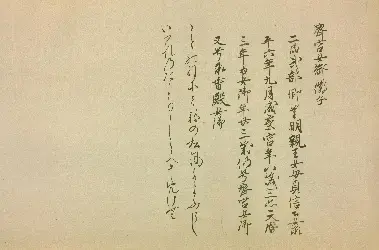 齊宮女御徽子
二品式部卿重明親王女母貞信公女承
平六年九月為齋宮年八歳 天暦
三年為女御年廿三歳仍号齊宮女御
又号承香殿女御
ことのねにみねの松風かよふらし
いつれのをよりしらへそめけむ